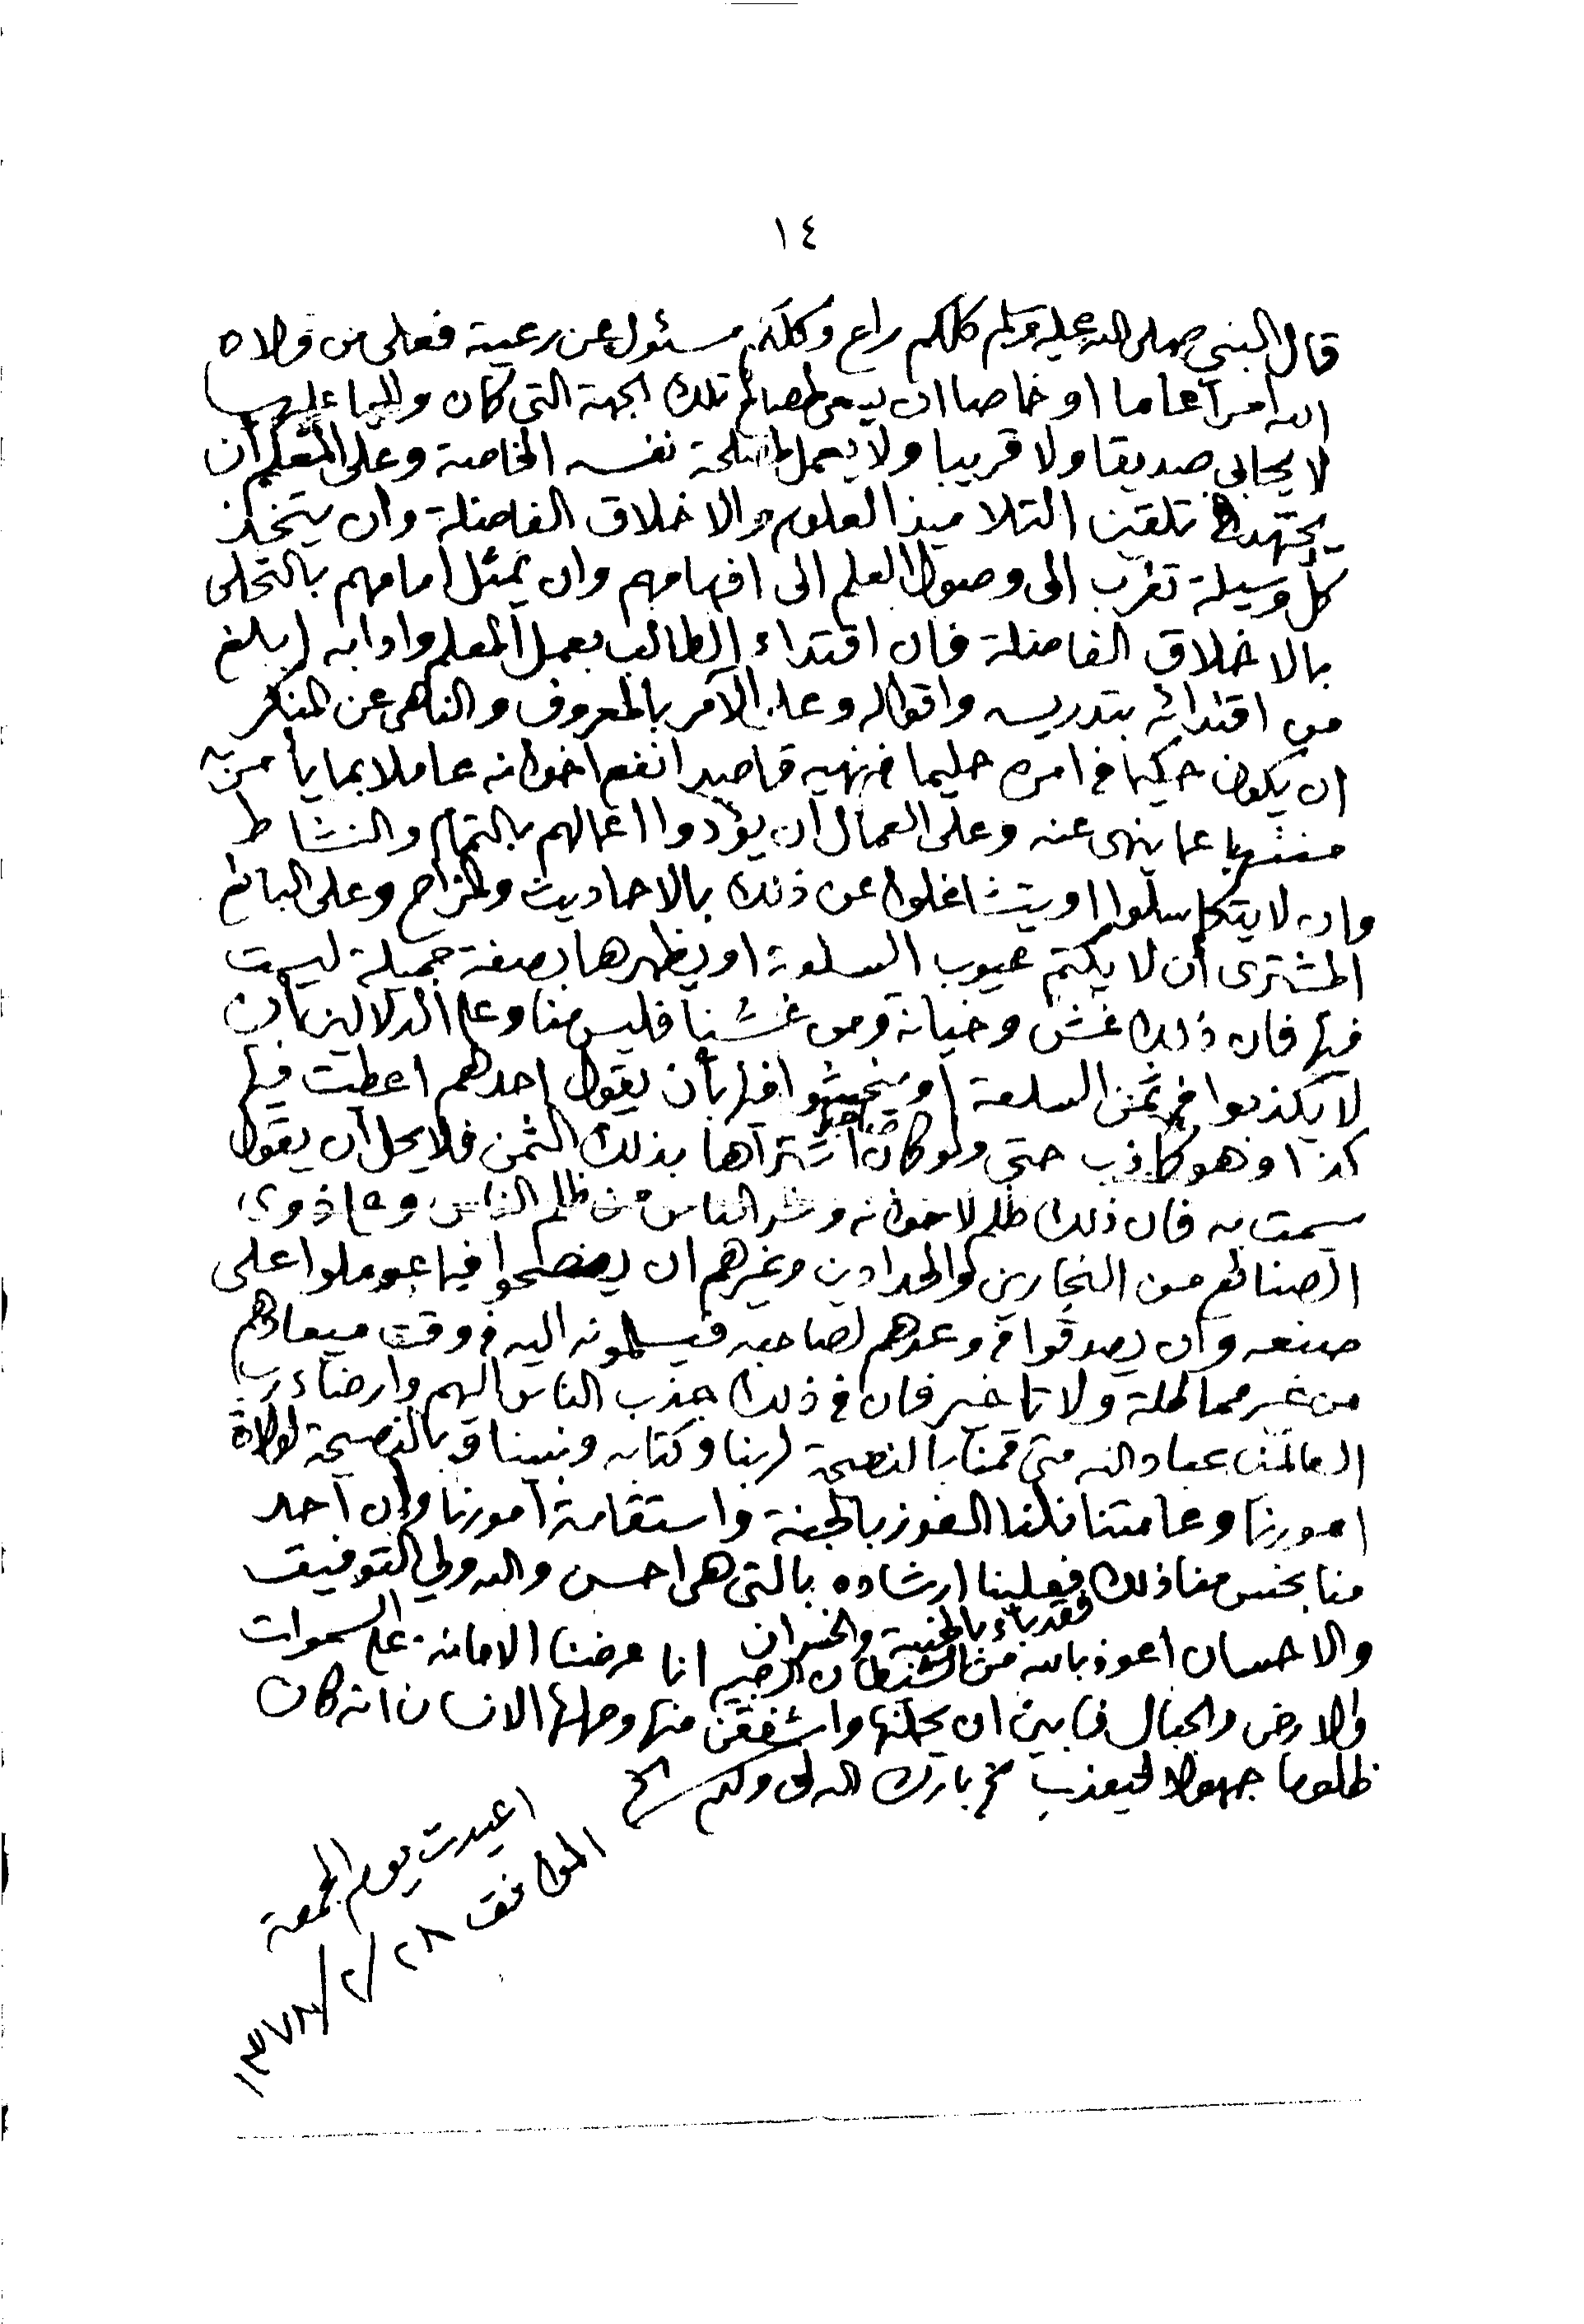 ١٤
قال النبي صلى الله عليه وسلم كلكم راع وكلكم مسئول عن رعيته فعلى من ولاه
الله امرا عاما او خاصا ان يسعى لمصالح تلك الجهة التي كان واليا عليها
لا يحابي صديقا ولا قريبا ولا يعمل لمصلحة نفسه الخاصة وعلى المعلم أن
يجتهد في تلقين التلاميذ العلوم والاخلاق الفاضلة وان يتخذ
كل وسيلة تقرب الى وصول العلم الى افهامهم وان يمثل امامهم بالتحلي
بالاخلاق الفاضلة فان اقتداء الطالب بعمل المعلم وادابه ابلغ
من اقتدائه بتدريسه واقواله وعلى الآمر بالمعروف والناهي عن المنكر
ان يكون حكيما في امره حليما في نهيه قاصدا نفع اخوانه عاملا بما يأمر به
منتهيا عما ينهى عنه وعلى العمال أن يؤدوا اعمالهم بالتمام والنشاط
وان لا يتكاسلوا او يتشاغلوا عن ذلك بالاحاديث والمزاح وعلى البائع
المشترى أن لا يكتم عيوب السلعة او يظهرها بصفة جميلة ليست
فيها فان ذلك غش وخيانة ومن غشنا فليس منا وعلى الدلالين بأن
لا يكذبوا في ثمن السلعة او ينجشوا فيها بأن يقول احدهم اعطيت فيها
كذا وهو كاذب حتى ولو كان صاحبها اشتراها بذلك الثمن فلا يحل أن يقول
سيمت به فان ذلك ظلم لاخوانه وشر الناس من ظلم الناس وعلى ذوى
الصنائع من النجارين والحدادين وغيرهم ان ينصحوا فيما عوملوا على
صنعه وأن يصدقوا في وعدهم لصاحبه فيسلمونه اليه في وقت ميعادهم
من غير مماطلة ولا تاخير فان في ذلك جذب الناس اليهم وارضاء رب
العالمين عباد الله متى قمنا بالنصيحة لربنا وكتابه ونبينا وبالنصيحة لولاة
امورنا وعامتنا نلنا الفوز بالجنة واستقامة أمورنا وأن احد
منا بخس منا ذلك فعلينا ارشاده بالتي هي احسن والله ولي التوفيق
فقد باء بالخيبة والخسران
والاحسان اعوذ بالله من الشيطان الرجيم انا عرضنا الامانة على السموات
والارض والجبال فابين ان يحملنها واشفقن منها وحملها الانسان انه كان
ظلوما جهولا ليعذب الخ بارك الله لي ولكم الخ
اعيدت يوم الجمعة
الموافق ٢٨/٢/١٣٧٨